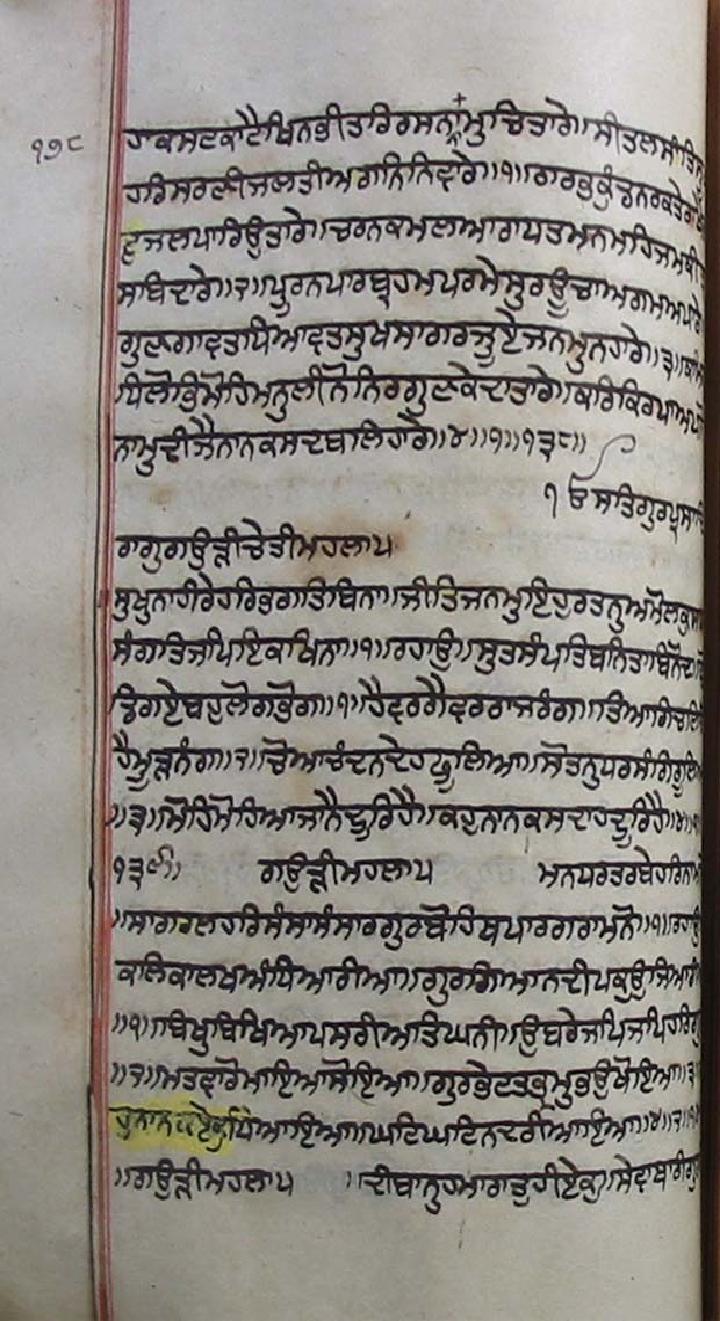 ੧੭੮
ਹਾਕਸਟਕਾਟੈਖਿਨਭੀਤਰਿਰਸਨਾਨਾਮੁਚਿਤਾਰੇ॥ਸੀਤਲਸਾਂਤਿ
ਹਰਿਸਰਣੀਜਲਤੀਅਗਨਿਨਿਵਾਰੇ॥੧॥ਗਰਭਕੁੰਡਨਰਕਤੇ
ਜਲਪਾਰਿਉਤਾਰੇ॥ਚਰਨਕਮਲਆਰਾਧਤਮਨਮਹਿਜਮਕੀ
ਸਬਿਦਾਰੇ॥੨॥ਪੂਰਨਪਾਰਬ੍ਰਹਮਪਰਮੇਸੁਰਊਚਾਅਗਮਅਪਾਰੇ
ਗੁਣਗਾਵਤਧਿਆਵਤਸੁਖਸਾਗਰਜੂਏਜਨਮੁਨਹਾਰੇ॥੩॥ਕਾਮਿ
ਧਿਲੋਭਿਮੋਹਿਮਨੁਲੀਨੋਨਿਰਗੁਣਕੇਦਾਤਾਰੇ॥ਕਰਿਕਿਰਪਾਅਪੋ
ਨਾਮੁਦੀਜੈਨਾਨਕਸਦਬਲਿਹਾਰੇ॥੪॥੧॥੧੩੮॥
੧ਓਸਤਿਗੁਰਪ੍ਰਸਾਦਿ
ਰਾਗੁਗਉੜੀਚੇਤੀਮਹਲਾ੫
ਸੁਖੁਨਾਹੀਰੇਹਰਿਭਗਤਿਬਿਨਾ॥ਜੀਤਿਜਨਮੁਇਹੁਰਤਨੁਅਮੋਲਕੁਸਾ
ਸੰਗਤਿਜਪਿਇਕਖਿਨਾ॥੧॥ਰਹਾਉ॥ਸੁਤਸੰਪਤਿਬਨਿਤਾਬਿਨੋਦ॥
ਡਿਗਏਬਹੁਲੋਗਭੋਗ॥੧॥ਹੈਵਰਗੈਵਰਰਾਜਰੰਗ॥ਤਿਆਗਿਚਲਿ
ਹੈਮੂੜਨੰਗ॥੨॥ਚੋਆਚੰਦਨਦੇਹਫੂਲਿਆ॥ਸੋਤਨੁਧਰਸੰਗਿਰੂਲਿ
॥੩॥ਮੋਹਿਮੋਹਿਆਜਾਨੈਦੂਰਿਹੈ॥ਕਹੁਨਾਨਕਸਦਾਹਦੂਰਿਹੈ॥੪॥੧
੧੩੯॥ ਗਉੜੀਮਹਲਾ੫ ਮਨਧਰਤਰਬੇਹਰਿਨਾਮ
॥ਸਾਗਰਲਹਰਿਸੰਸਾਸੰਸਾਰਗੁਰਬੋਹਿਥਪਾਰਗਰਾਮਨੋ॥੧॥ਰਹਾਉ
ਕਲਿਕਾਲਖਅੰਧਿਆਰੀਆ॥ਗੁਰਗਿਆਨਦੀਪਕਉਜਿਆਰੀ
॥੧॥ਬਿਖੁਬਿਖਿਆਪਸਰੀਅਤਿਘਨੀ॥ਉਬਰੇਜਪਿਜਪਿਹਰਿਗੁ
॥੨॥ਮਤਵਾਰੋਮਾਇਆਸੋਇਆ॥ਗੁਰਭੇਟਤਭ੍ਰਮੁਭਉਖੋਇਆ॥੩
ਹੁਨਾਨਕਏਕੁਧਿਆਇਆ॥ਘਟਿਘਟਿਨਦਰੀਆਇਆ॥੪॥੨॥੧
॥ਗਉੜੀਮਹਲਾ੫ ॥ਦੀਬਾਨੁਹਮਾਰਾਤੁਹੀਏਕੁ॥ਸੇਵਾਥਾਰੀਗੁ